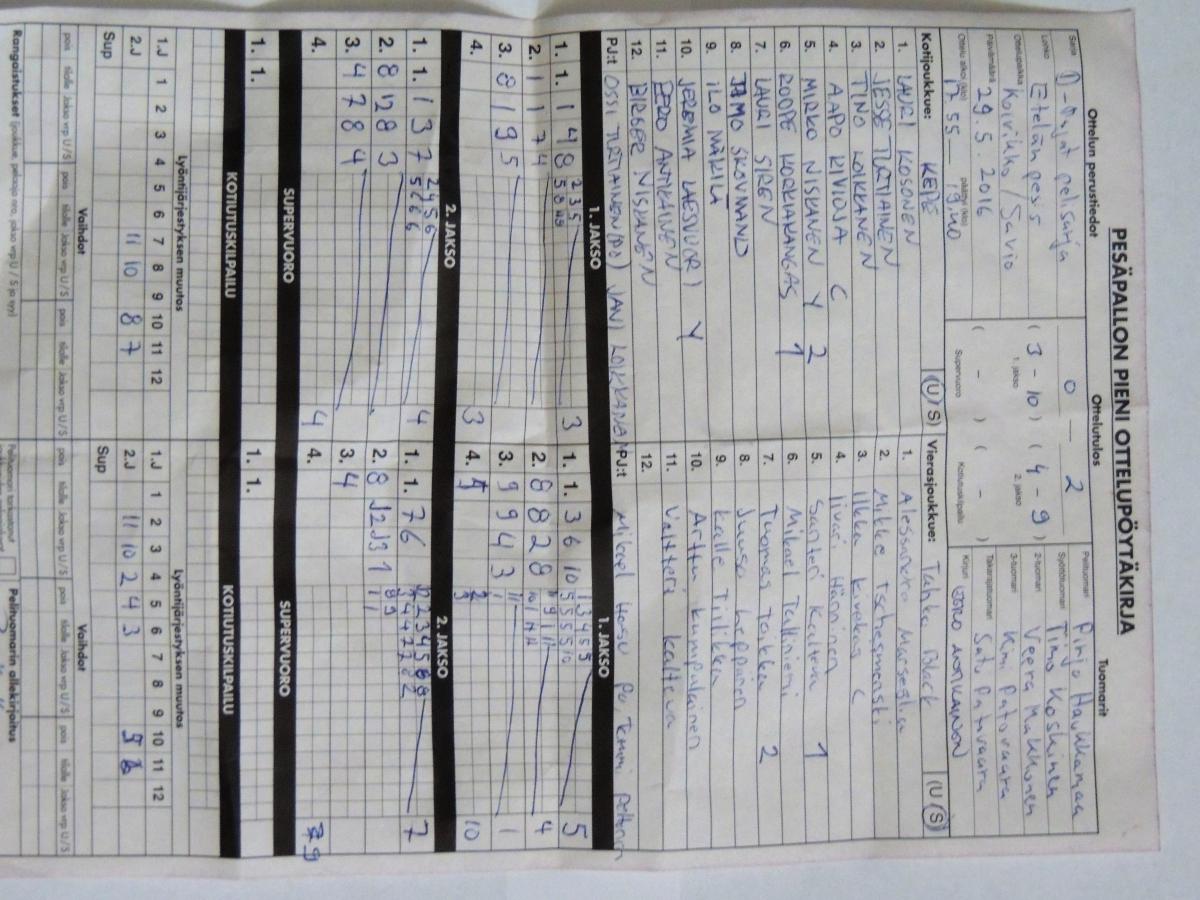 PESÄPALLON PIENI OTTELUPÖYTÄKIRJA
Ottelun perustiedot
Ottelutulos
Tuomarit
Sarja D-Pojat pelisarja
Lohko Etelän pesis
Ottelupaikka Koivikko / Savio
Päivämäärä 29.5.2016
Ottelu alkoi (klo) 17 55 päättyi (klo)
0 — 2
( 3 - 10 ) ( 4 - 9 )
1. jakso 2. jakso
( - ) ( - )
Supervuoro Kotiutuskilpailu
Pelituomari Pirjo Haukkamaa
Syöttötuomari Timo Koskinen
2-tuomari Veera Makkonen
3-tuomari Kimi Patovaara
Takarajatuomari Satu Patovaara
Kirjuri EERO
Kotijoukkue: KEPE (U) S)
1. LAURI KOSONEN
2. JESSE TURTIAINEN
3. TINO LOIKKANEN
4. AAPO KIVIOJA C
5. MIRKO NISKANEN Y 2
6. ROOPE KORKIAKANGAS 1
7. LAURI SIREN
8. JIMO SKOVMAND
9. ILO MÄKILÄ
10. JEREMIA Y
11. EERO
12. BIRGER NISKANEN
PJ:t OSSI TURTIAINEN (PJ) JANI LOIKKANEN
Vierasjoukkue: Tahko Black (U (S)
1. Alessandro Marseglia
2. Mikke Tschesmenski
3. Ilkka Kivekäs C
4. Iivari Hänninen
5. Santeri Kalteva 1
6. Mikael Talliniemi
7. Tuomas Takka 2
8. Juuso Leppänen
9. Kalle Tiilikka
10. Arttu Kumpulainen
11. Valtteri Kalteva
12.
PJ:t Mikael Harju PJ Temmi Peltonen
1. JAKSO
1. 1. 1 4 8 2 3 5 3
2. 1 1 7 4
3. 8 1 9 5
4. 3
1. JAKSO
1. 1. 3 6 10 5
2. 8 8 2 8 4
3. 9 9 4 3 1
4. 10
2. JAKSO
1. 1. 1 3 7 2 4 5 6 4
2. 8 12 8 3
3. 4 7 8 4
4. 4
2. JAKSO
1. 1. 7 6 7
2. 8
3. 4
4. 9
SUPERVUORO
SUPERVUORO
1. 1.
1. 1.
KOTIUTUSKILPAILU
KOTIUTUSKILPAILU
Lyöntijärjestyksen muutos
1.J 1 2 3 4 5 6 7 8 9 10 11 12
2.J 11 10 8 7
Sup
Lyöntijärjestyksen muutos
1.J 1 2 3 4 5 6 7 8 9 10 11 12
2.J 11 10 2 4 3 9
Sup
Vaihdot
pois tilalle Jakso vrp U/S pois tilalle Jakso vrp U/S pois tilalle Jakso vrp U/S
Vaihdot
pois tilalle Jakso vrp U/S pois tilalle Jakso vrp U/S pois tilalle Jakso vrp U/S
Rangaistukset (joukkue, pelaaja nro, jakso vrp U / S ja syy)
Pelituomari tarkastanut
Pelituomarin allekirjoitus